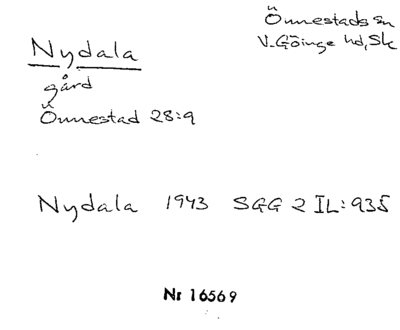 Önnestads sn
V. Göinge hd, Sk
Nydala
gård
Önnestad 28:9
Nydala 1943 SGG 2 IL: 935
Nr 16569